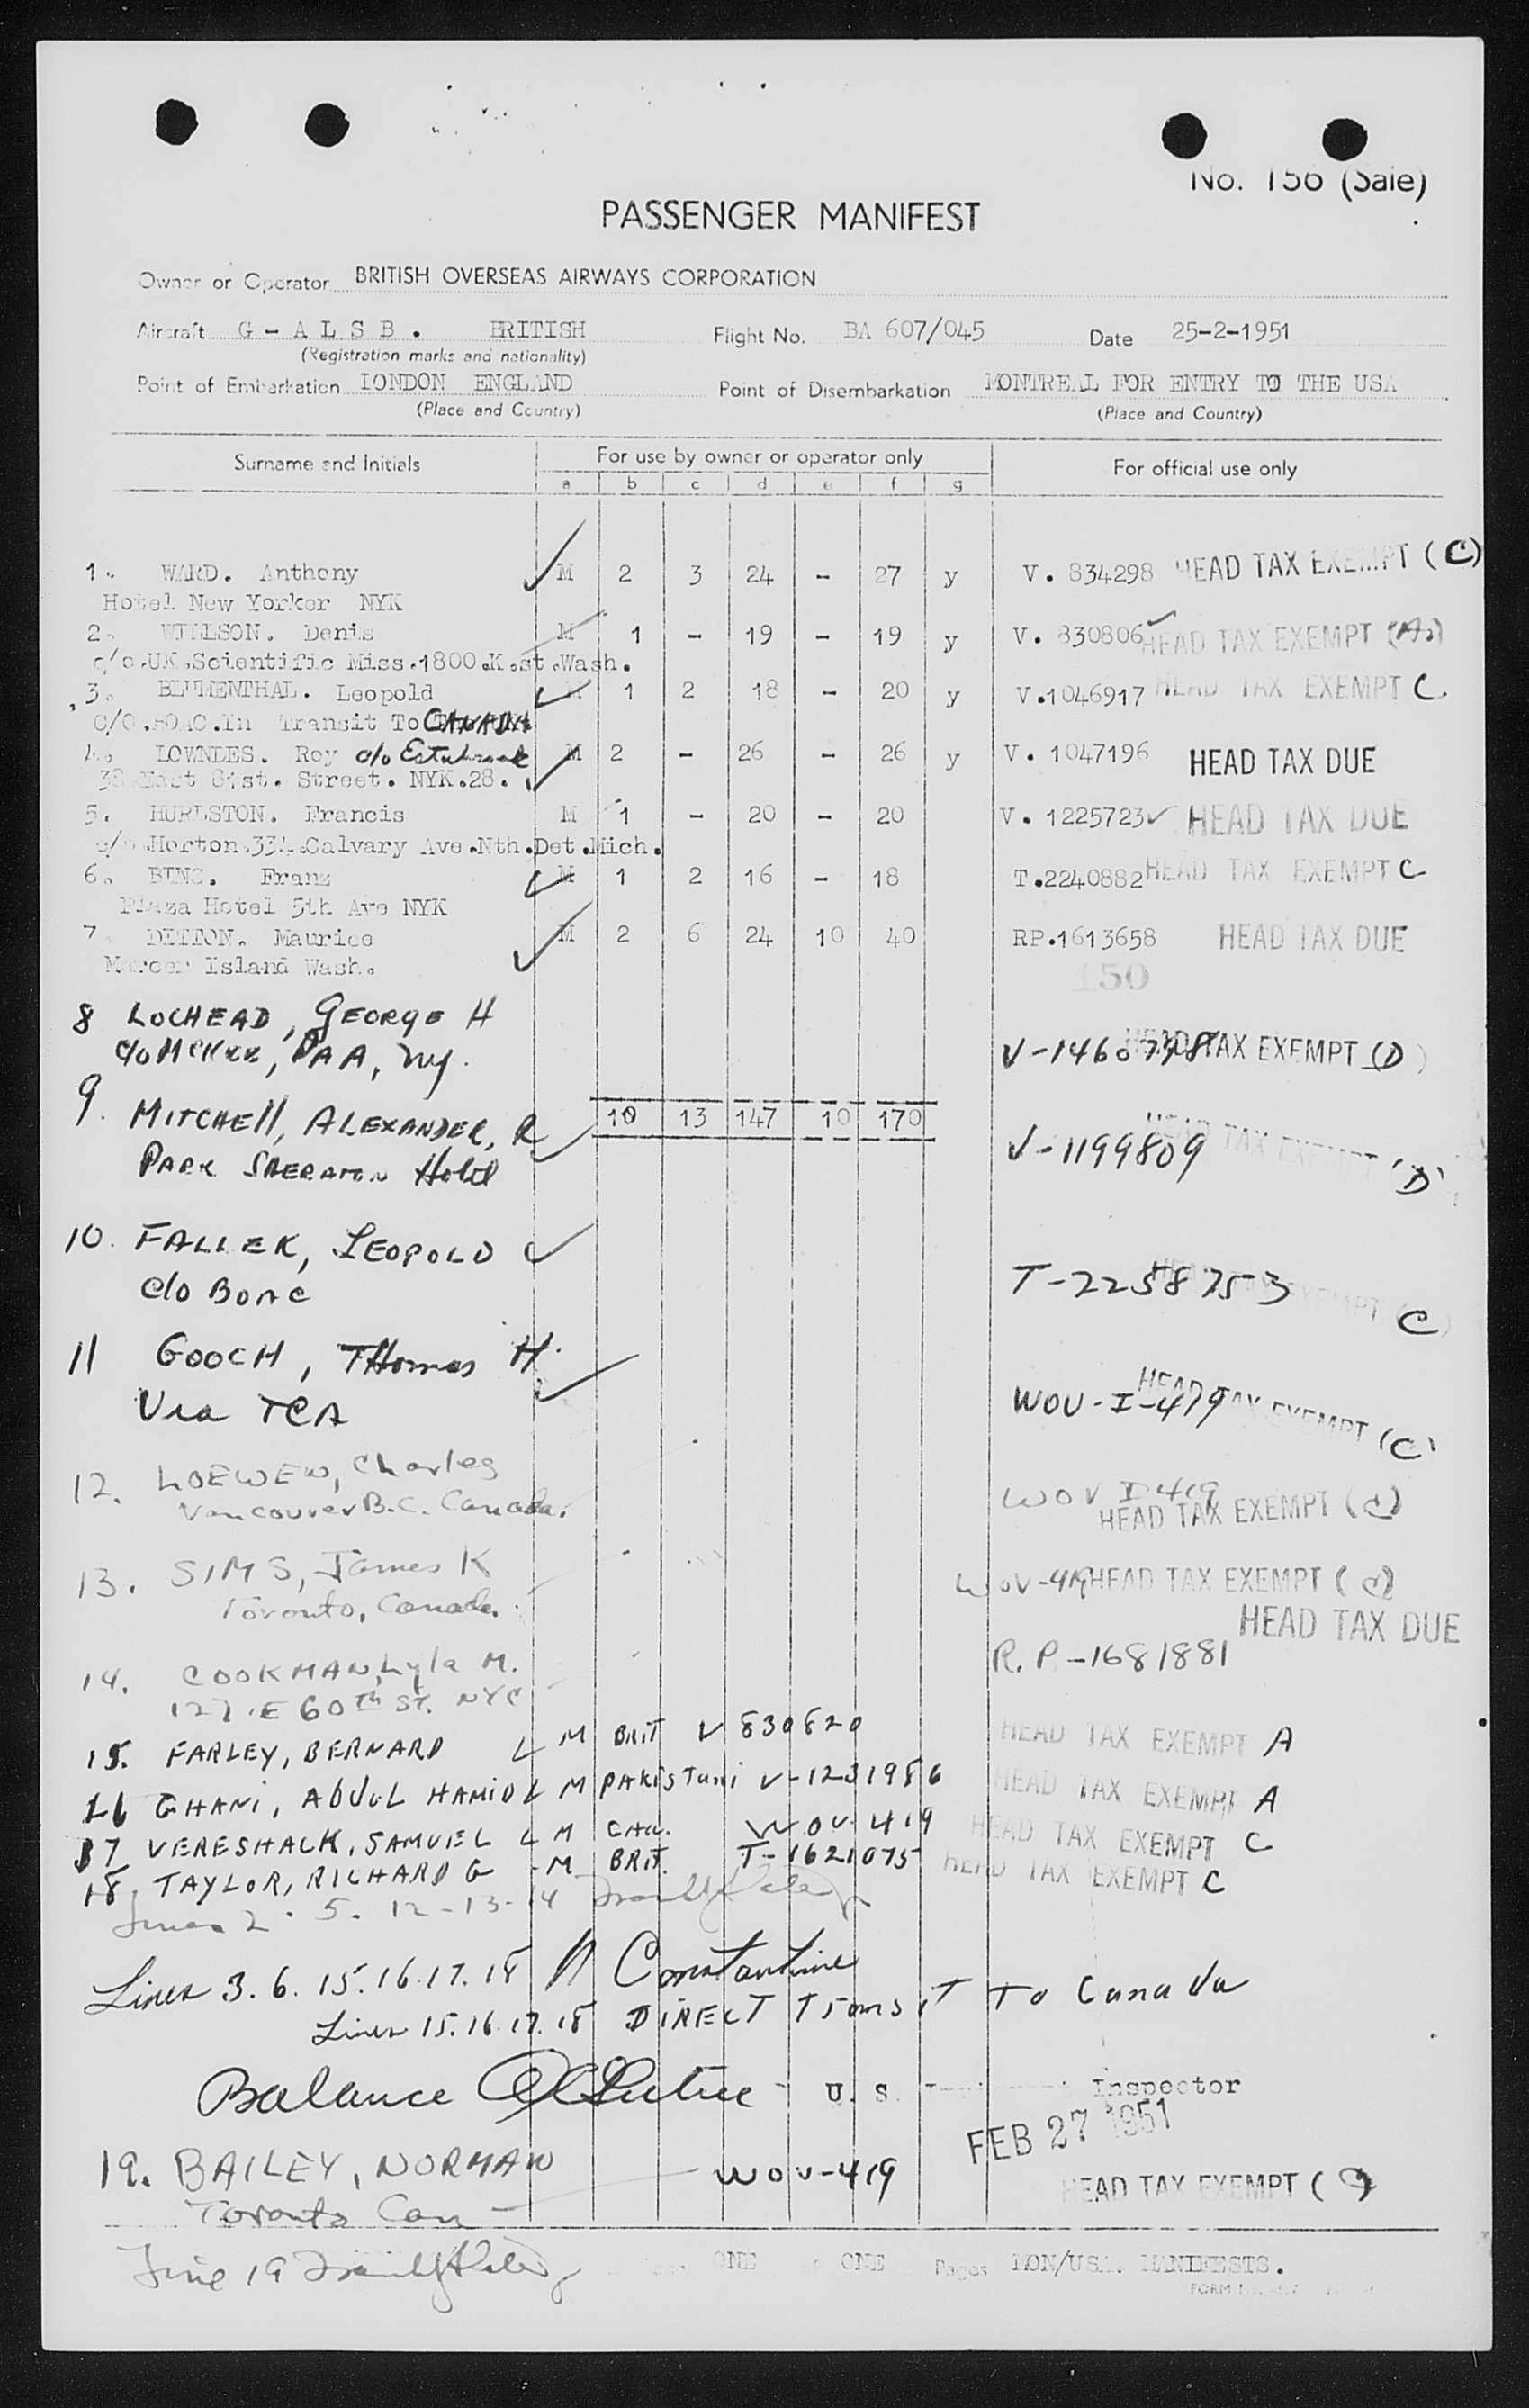 No. 156 (Sale)
PASSENGER MANIFEST
Owner or Operator BRITISH OVERSEAS AIRWAYS CORPORATION
Aircraft G - A L S B . BRITISH Flight No. BA 607/045 Date 25-2-1951
(Registration marks and nationality)
Point of Embarkation LONDON ENGLAND Point of Disembarkation MONTREAL FOR ENTRY TO THE USA
(Place and Country) (Place and Country)
Surname and Initials For use by owner or operator only For official use only
a b c d e f g
1. WARD. Anthony M 2 3 24 - 27 y V. 834298 HEAD TAX EXEMPT (C)
Hotel New Yorker NYK
2. WILLSON. Denis M 1 - 19 - 19 y V. 830806 HEAD TAX EXEMPT (A)
c/o.UK.Scientific Miss.1800.K.st.Wash.
3. BLUMENTHAL. Leopold M 1 2 18 - 20 y V.1046917 HEAD TAX EXEMPT C.
C/O.BOAC.In Transit To CANADA
4. LOWNDES. Roy c/o M 2 - 26 - 26 y V. 1047196 HEAD TAX DUE
38 East 81st. Street. NYK.28.
5. HURLSTON. Francis M 1 - 20 - 20 V. 1225723 HEAD TAX DUE
c/o.Horton.334.Calvary Ave.Nth.Det.Mich.
6. BING. Franz M 1 2 16 - 18 T.2240882 HEAD TAX EXEMPT C
Plaza Hotel 5th Ave NYK
7 DITTON. Maurice M 2 6 24 10 40 RP.1613658 HEAD TAX DUE
Mercer Island Wash.
150
8 LOCHEAD, GEORGE H
c/o McKee, PAA, NY. V-1460798 HEAD TAX EXEMPT (D)
10 13 147 10 170
9. MITCHELL, ALEXANDER, R V-1199809 HEAD TAX EXEMPT 'D'
PARK SHERATON Hotel
10. FALLEK, LEOPOLD T-2258753 HEAD TAX EXEMPT C
c/o BOAC
11 GOOCH, THomas H.
Via TCA WOV-I-419 HEAD TAX EXEMPT (C)
12. LOEWEN, Charles WOV I 419
Vancouver B.C. Canada. HEAD TAX EXEMPT (C)
13. SIMS, James K WOV-419 HEAD TAX EXEMPT (C)
Toronto, Canada.
HEAD TAX DUE
14. COOKMAN, Lyla M. R.P-1681881
127 E 60th ST. NYC
15. FARLEY, BERNARD M BRIT V 830820 HEAD TAX EXEMPT A
16 GHANI, ABDUL HAMID M PAKISTani V-1231986 HEAD TAX EXEMPT A
17 VERESHACK, SAMUEL M CAN. WOV 419 HEAD TAX EXEMPT C
18, TAYLOR, RICHARD G - M BRIT. T-1621075 HEAD TAX EXEMPT C
Lines 2. 5. 12-13-14
Lines 3. 6. 15. 16. 17. 18 N Constantine
Lines 15. 16. 17. 18 DIRECT Transit To Canada
Balance U. S. Inspector
FEB 27 1951
19. BAILEY, NORMAN WOV-419 HEAD TAX EXEMPT (C)
Toronto Can
Line 19 ONE ONE Pages MON/USA. MANIFESTS.